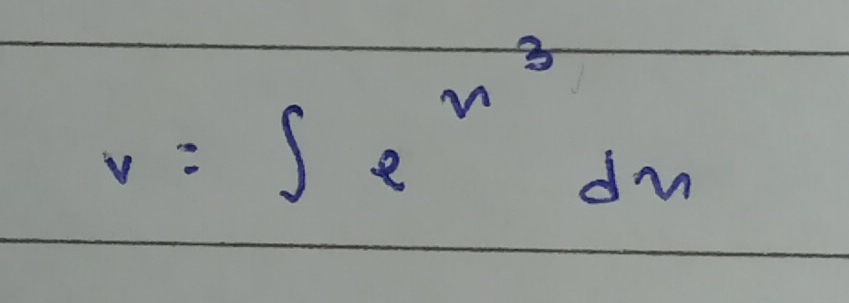 v = ∫ e^{x^3} dx